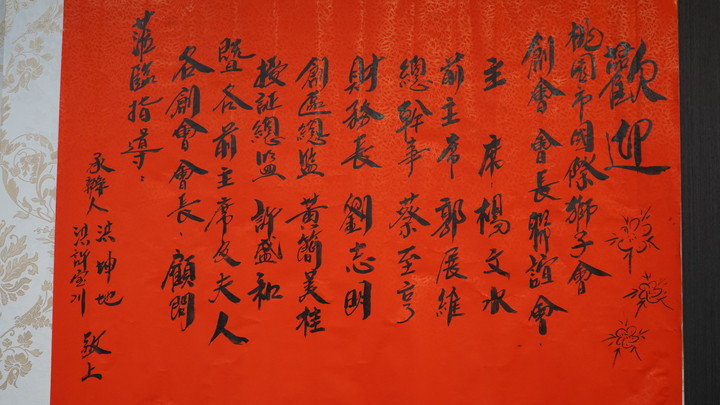 歡迎
桃園市國際獅子會
創會會長聯誼會.
主席楊文水
前主席郭展維
總幹事 蔡至亨
財務長 劉志明
創區總監 黃簡美桂
授証總監 許盛和
暨各前主席及夫人
各創會會長、顧問
蒞臨指導:
承辦人 洪坤地
洪許宝川
敬上